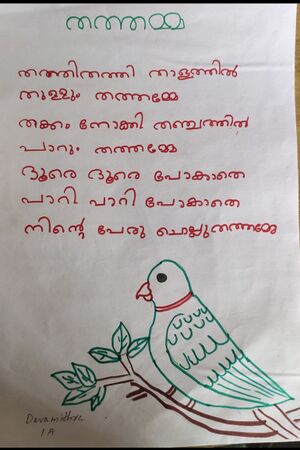 തത്തമ്മ
തത്തിതത്തി താളത്തിൽ
തുള്ളും തത്തമ്മേ
തക്കം നോക്കി തഞ്ചത്തിൽ
പാറും തത്തമ്മേ
ദൂരെ ദൂരെ പോകാതെ
പാറി പാറി പോകാതെ
നിന്റെ പേരു ചൊല്ലുതത്തമ്മേ
Devamithra
1A